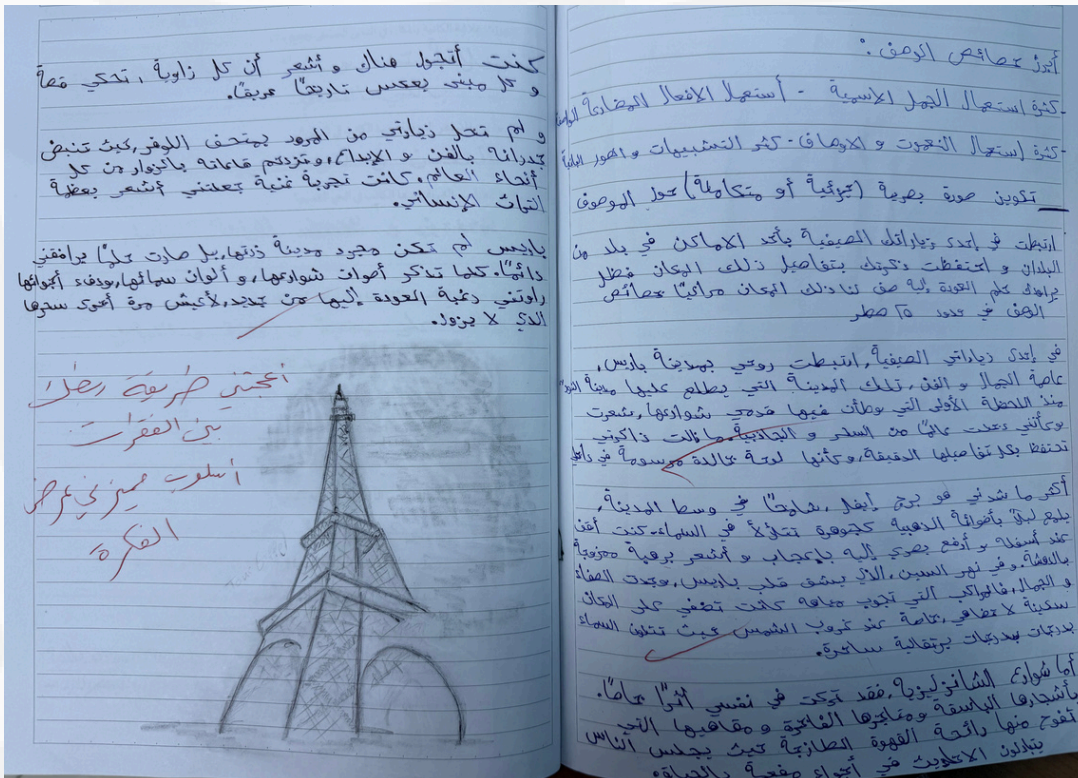 أبرز خصائص الوصف :
- كثرة استعمال الجمل الاسمية - أستعمال الافعال المضارعة
- كثرة إستعمال النعوت و الاوصاف - كثر التشبيهات و الصور
تكوين صورة بصرية (جزئية أو متكاملة) حول الموصوف
ارتبطت في إحدى زياراتك الصيفية بأحد الاماكن في بلد من
البلدان و احتفظت ذكرتك بتفاصيل ذلك المكان فظل
يراودك حلم العودة إليه صف لنا ذلك المكان مراعيًا خصائص
الوصف في حدود ١٥ صطر
في إحدى زياراتي الصيفية, ارتبطت روحي بمدينة باريس,
عاصة الجمال و الفن, تلك المدينة التي يطلع عليها مدينة النور
منذ اللحظة الأولى التي وطأت فيها قدمي شوارعها, شعرت
وكأنني دخلت عالمًا من السحر و الجاذبية. ما زالت ذاكرتي
تحتفظ بكل تفاصيلها الدقيقة, وكأنها لوحة خالدة مرسومة في داخلي
أكثر ما شدني هو برج إيفل, شامخًا في وسط المدينة,
يلمع ليلًا بأضوائه الذهبية كجوهرة تتلألأ في السماء. كنت أقف
عند أسفله و أرفع بصري إليه بإعجاب و أشعر برهبة ممزوجة
بالدهشة. وفي نهر السين, الذي يشق قلب باريس, وجدت الصفاء
و الجمال, فالمراكب التي تجوب مياهه كانت تضفي على المكان
سكينة لا تضاهى, خاصة عند غروب الشمس حيث تتلون السماء
بدرجات بدرجات برتقالية ساحرة.
أما شوارع الشانزليزية, فقد تركت في نفسي أثرًا خاصًا.
بأشجارها الباسقة ومتاجرها الفاخرة و مقاهيها التي
تفوح منها رائحة القهوة الطازجة حيث يجلس الناس
يتبادلون الاحاديث في أجواء مفعمة بالحياة.
كنت أتجول هناك و أشعر أن كل زاوية, تحكي قصة
و كل مبنى يعكس تاريخًا عريقًا.
و لم تخل زيارتي من المرور بمتحف اللوفر, حيث تنبض
جدرانه بالفن و الإبداع, وتزدحم قاعاته بالزوار من كل
أنحاء العالم. كانت تجربة غنية جعلتني أشعر بعظمة
التراث الإنساني.
باريس لم تكن مجرد مدينة زرتها, بل صارت حلمًا يرافقني
دائمًا. كلما تذكر أصوات شوارعها, و ألوان سمائها, ودفء أجوائها
راوتني رغبة العودة إليها من جديد, لأعيش مرة أخرى سحرها
الذي لا يزول.
أعجبتني طريقة ربطك
بين الفقرات
أسلوب مميز في عرض
الفكرة